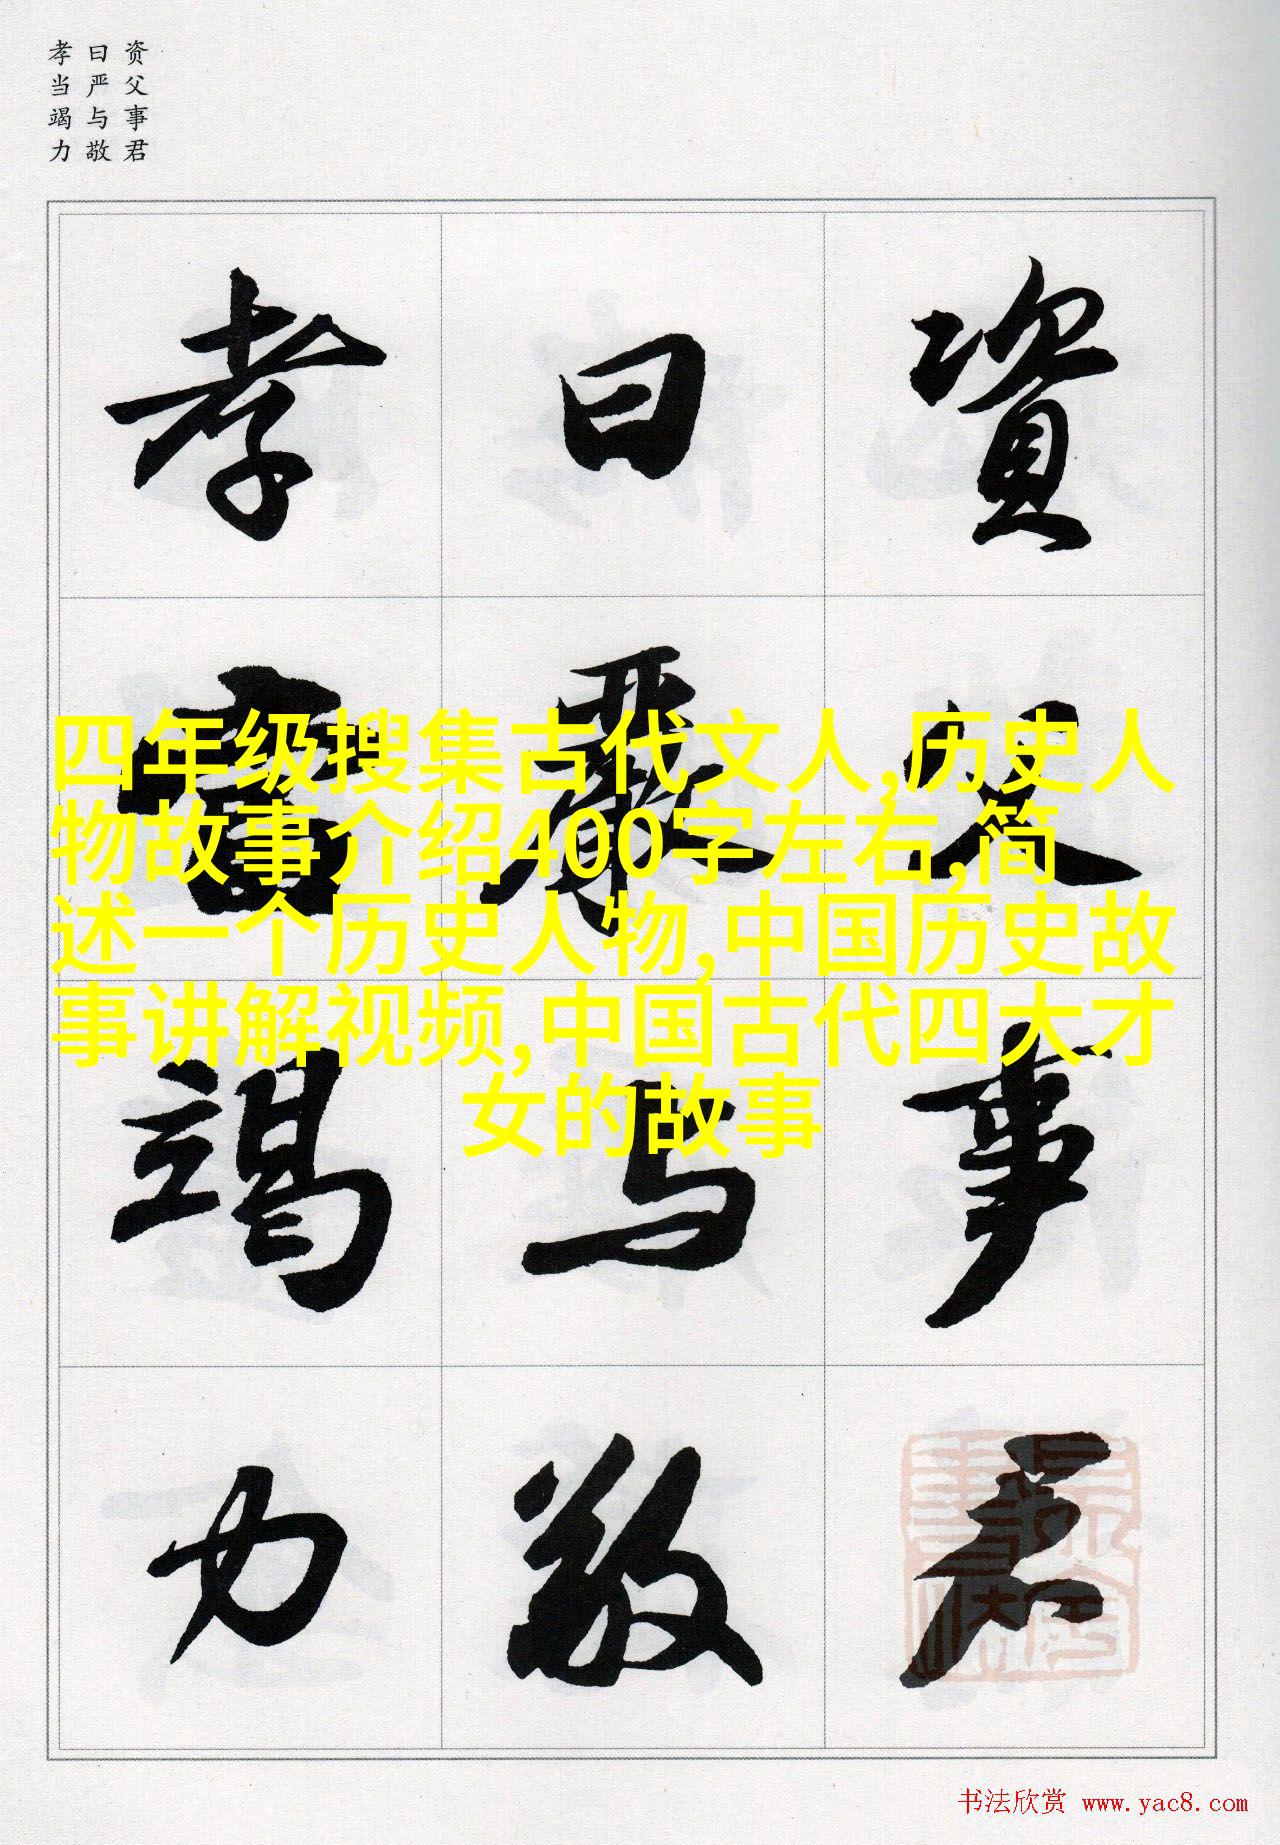 资父事君
曰严与敬
孝当竭力
資父事君
曰嚴与敬
孝當竭力
四年级搜集古代文人,历史人
物故事介绍400字左右,简
述一个历史人物,中国历史故
事讲解视频,中国古代四大才
女的故事
书法欣赏 www.yac8.com